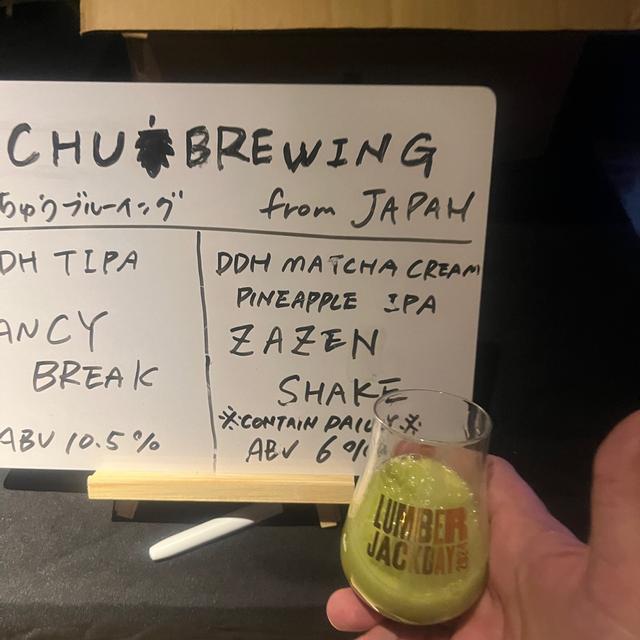 CHU BREWING
ちゅうブルーイング from JAPAN
DH TIPA
ANCY
BREAK
ABV 10.5%
DDH MATCHA CREAM
PINEAPPLE IPA
ZAZEN
SHAKE
※CONTAIN DAILY※
ABV 6%
LUMBER
JACKDAY